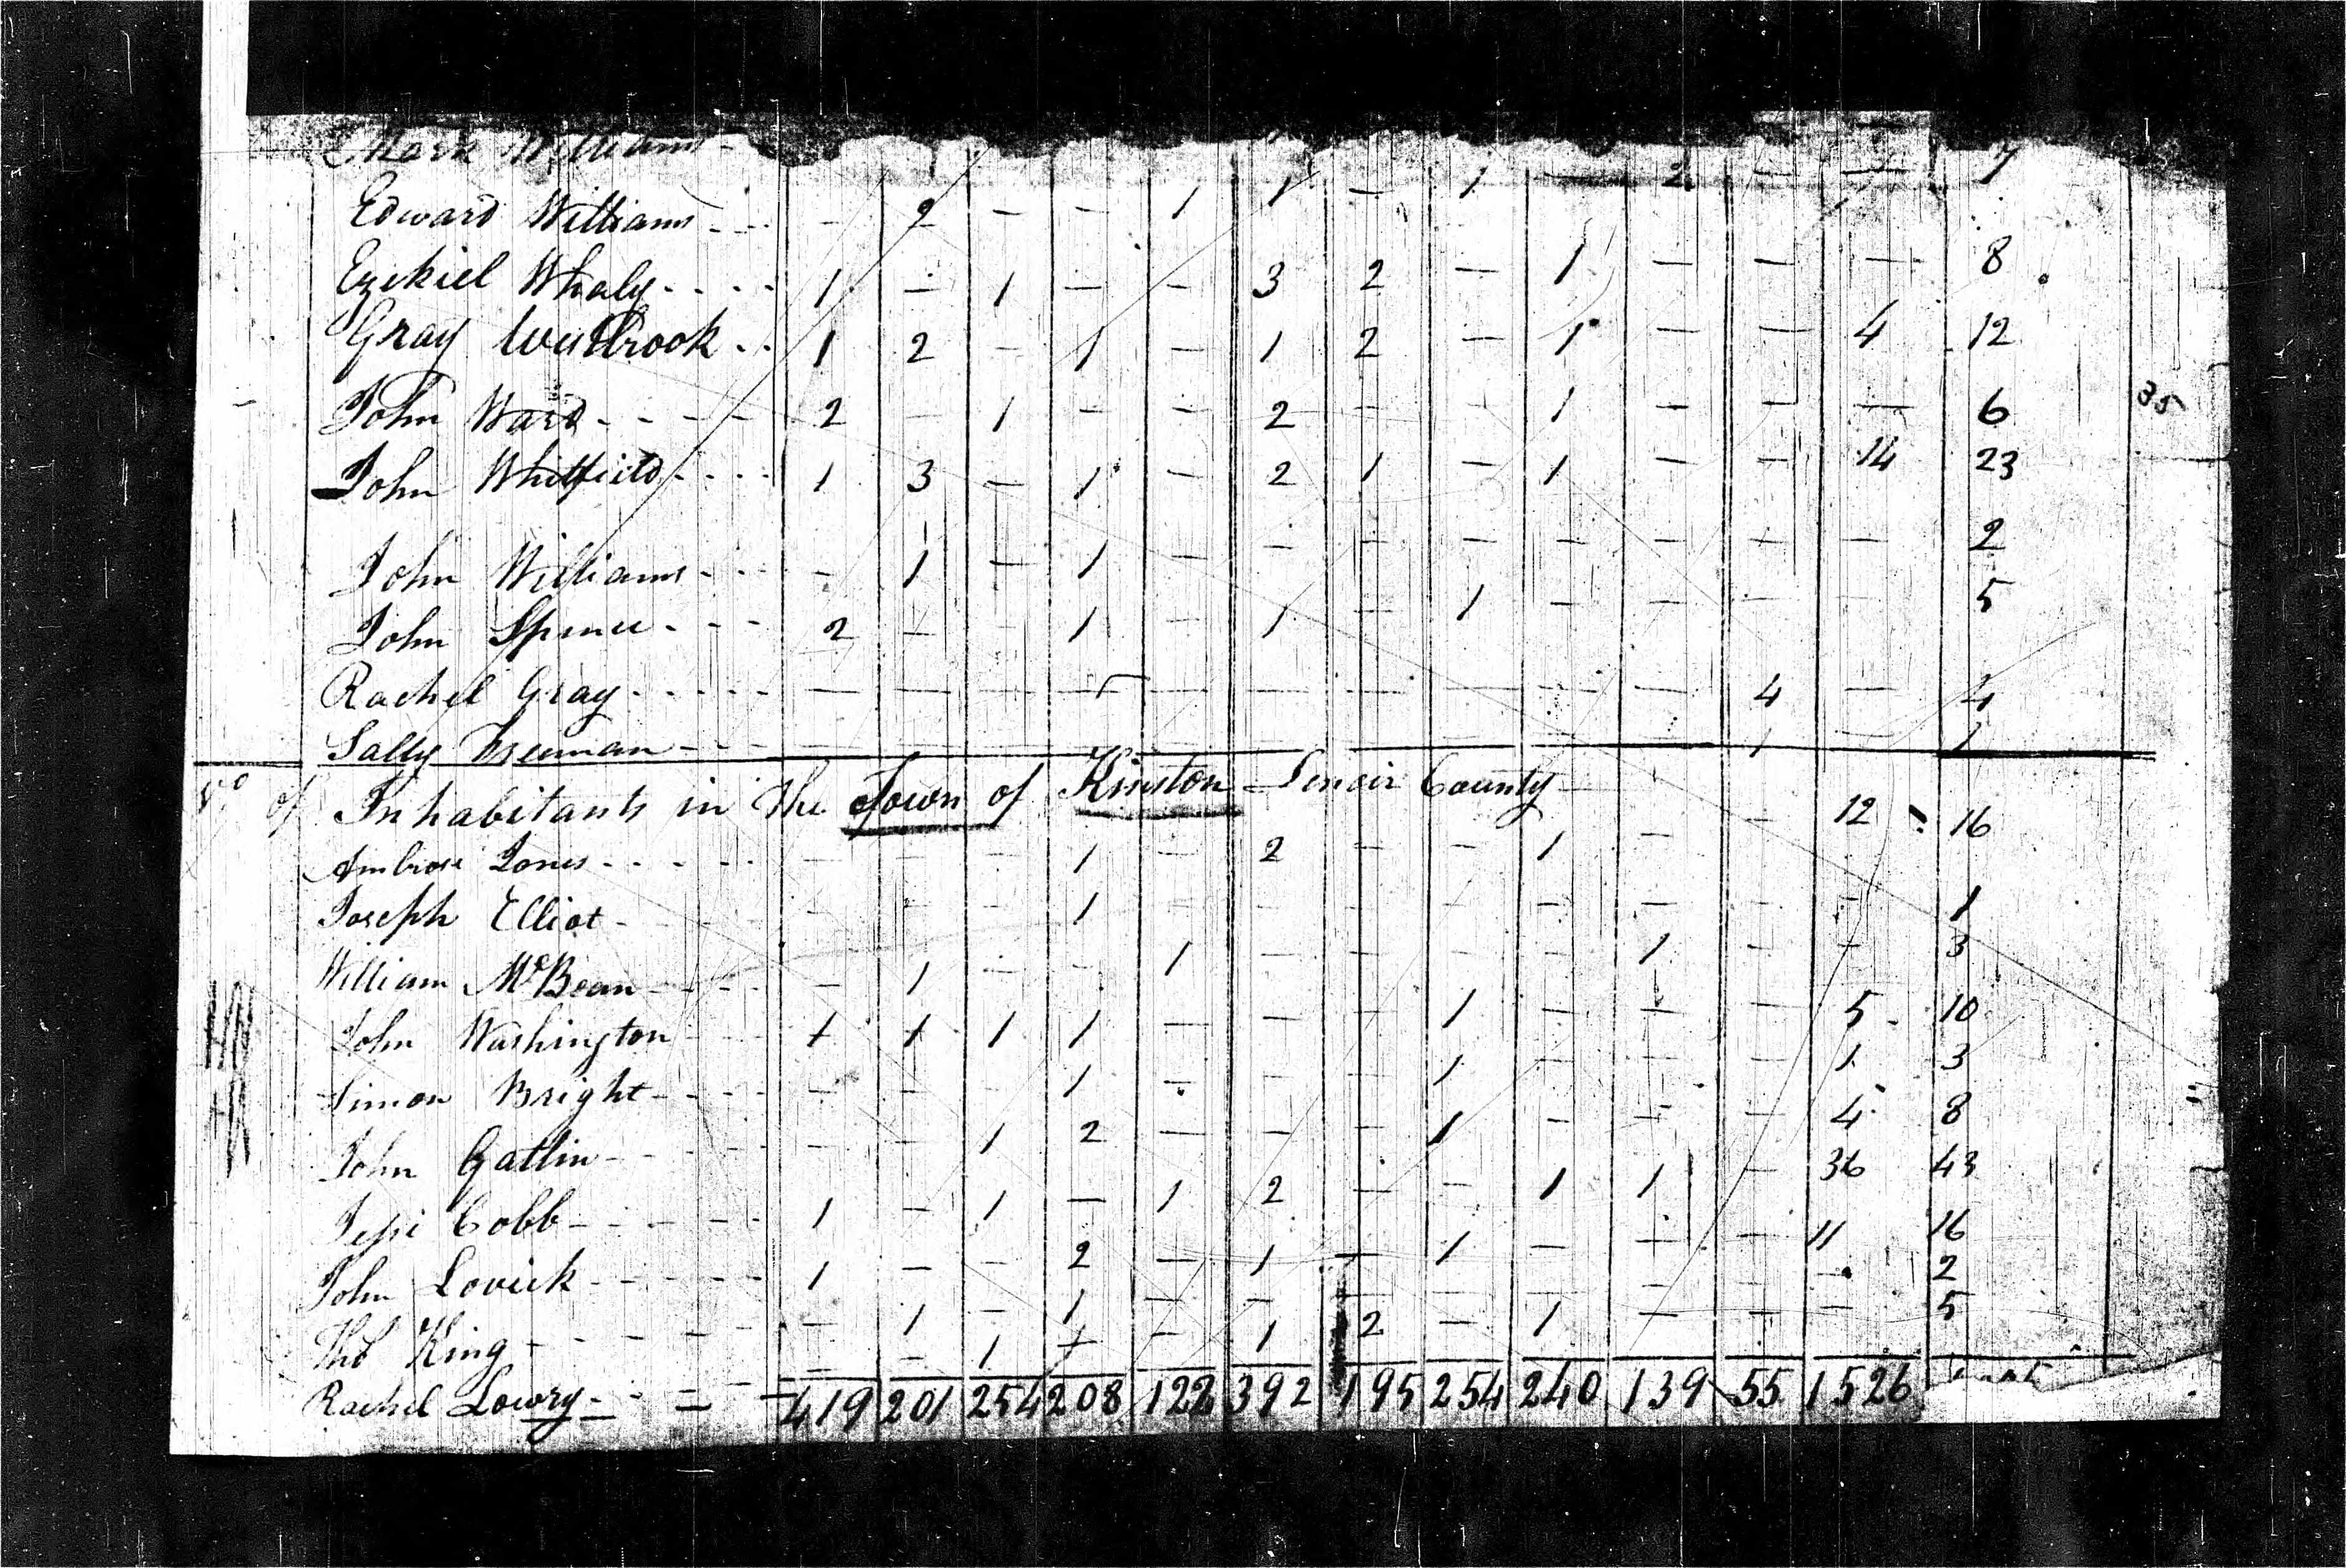 Mark Williams -
Edward Williams - - - - 2 - - 1 1 - 1 - 2 - - 7
Ezekiel Whaly - - - - 1 - 1 - - 3 2 - 1 - - - 8
Gray Westbrook - - 1 2 - 1 - 1 2 - 1 - - 4 12
John Ward - - - - 2 - 1 - - 2 - - 1 - - - 6 35
John Whitfield - - - - 1 3 - 1 - 2 1 - 1 - - 14 23
John Williams - - - - 1 - 1 - - - - - - - - 2
John Spence - - - 2 - - 1 - 1 - 1 - - - - 5
Rachel Gray - - - - - - - - - - - - - - 4 - 4
Sally Freeman - - - 1 - 1
No of Inhabitants in the Town of Kinston - Lenoir County
Ambrose Jones - - - - - - - 1 - 2 - - 1 - - 12 16
Joseph Elliot - - - - 1 - - - - - - - - 1
William McBean - - - - - 1 - - 1 - - - - 1 - - 3
John Washington - - 1 1 1 1 - - - 1 - - - 5 10
Simon Bright - - - - - - - 1 - - - 1 - - - 1 3
John Gatlin - - - - - 1 2 - - - 1 - - - 4 8
Jesse Cobb - - - - - 1 - 1 - 1 2 - - 1 1 - 36 43
John Lovick - - - - - 1 - - 2 - 1 - 1 - - - 11 16
Tho King - - - - - - 1 - 1 - - - - - - - - 2
Rachel Lowry - - - - - 1 1 - 1 2 - 1 - - - 5
419 201 254 208 122 392 195 254 240 139 55 1526